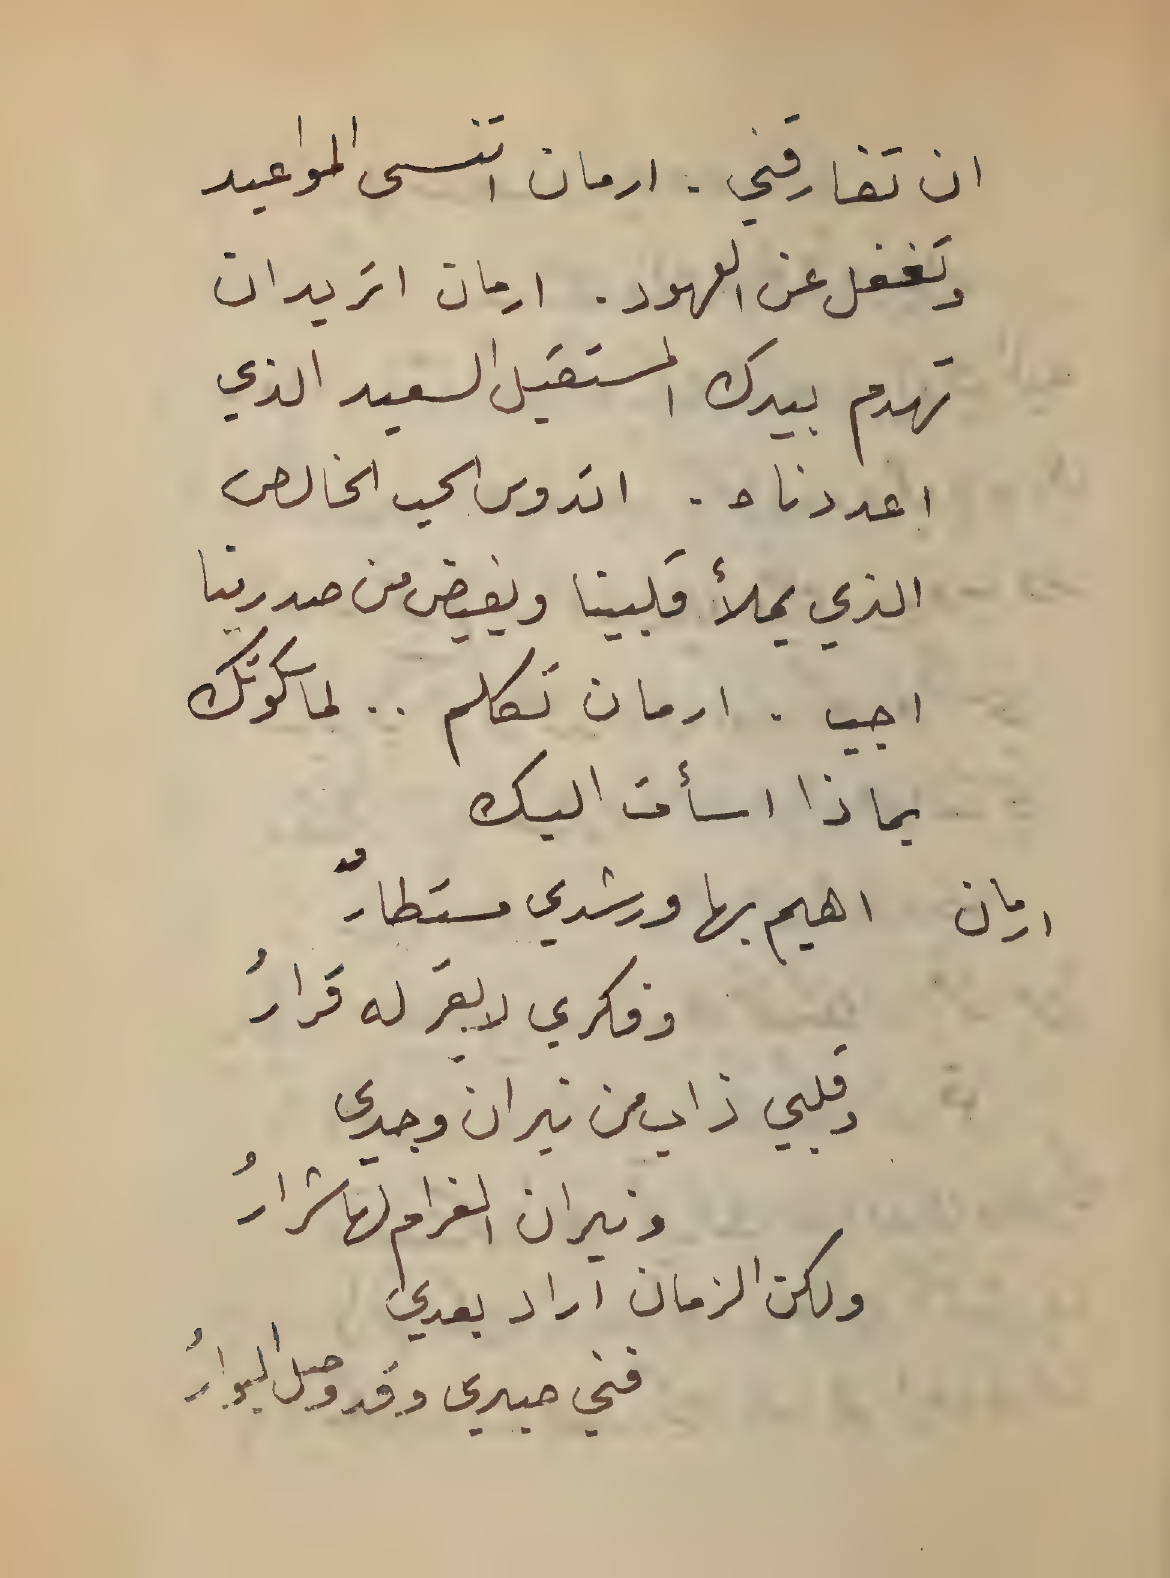 ان تفارقني . ارمان اتنسى المواعيد
وتغفل عن العهود . ارمان اتريد ان
تهدم بيدك المستقبل السعيد الذي
اعددناه . اتدوس الحب الخالص
الذي يملأ قلبينا ويفيض من صدرينا
اجب . ارمان تكلم .. لما سكوتك
بماذا اسأت اليك
ارمان اهيم بها ورشدي مستطارٌ
وفكري لا يقر له قرارُ
وقلبي ذاب من نيران وجدي
ونيران الغرام لها شرارُ
ولكن الزمان اراد بعدي
فني صبري وقد وصل البوارُ